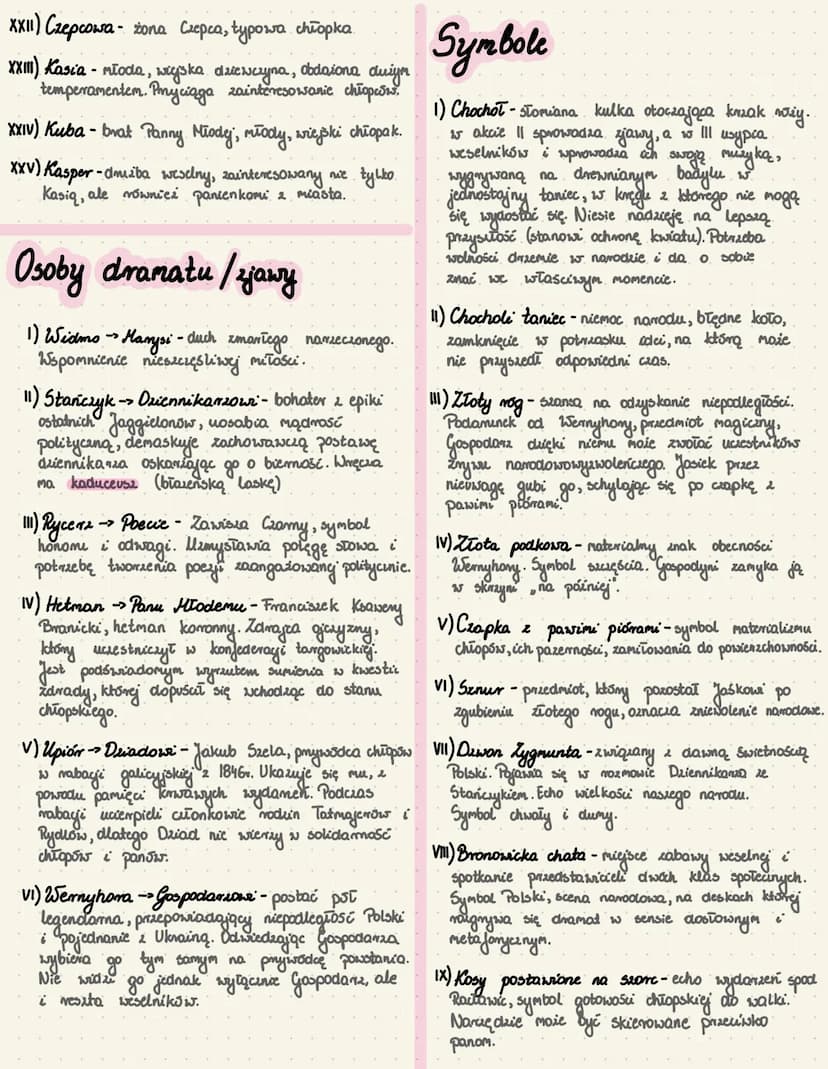 XXII) Czepcowa - żona Czepca, typowa chłopka
XXIII) Kasia - młoda, wiejska dziewczyna, obdażona dużym
temperamentem. Przyciąga zainteresowanie chłopców.
XXIV) Kuba - brat Panny Młodej, młody, wiejski chłopak.
XXV) Kasper - drużba weselny, zainteresowany nie tylko
Kasią, ale również panienkami z miasta.
Osoby dramatu / zjawy
I) Widmo → Marysi - duch zmarłego narzeczonego.
Wspomnienie nieszczęśliwej miłości.
II) Stańczyk → Dziennikarzowi - bohater z epiki
ostatnich Jaggielonów, uosabia mądrość
polityczną, demaskuje zachowawczą postawę
dziennikarza oskarżając go o bierność. Wręcza
ma kaduceusz (błazeńską laskę)
III) Rycerz → Poecie - Zawisza Czarny, symbol
honoru i odwagi. Uzmysławia potęgę słowa i
potrzebę tworzenia poezji zaangażowanej politycznie.
IV) Hetman → Panu Młodemu - Franciszek Ksawery
Branicki, hetman koronny. Zdrajca ojczyzny,
który uczestniczył w konfederacji targowickiej.
Jest podświadomym wyrzutem sumienia w kwestii
zdrady, której dopuścił się wchodząc do stanu
chłopskiego.
V) Upiór → Dziadowi - Jakub Szela, przywódca chłopów
w rabacji galicyjskiej z 1846r. Ukazuje się mu, z
powodu pamięci krwawych wydarzeń. Podczas
rabacji ucierpieli członkowie rodzin Tetmajerów i
Rydlów, dlatego Dziad nie wierzy w solidarność
chłopów i panów.
VI) Wernyhora → Gospodarzowi - postać pół
legendarna, przepowiadający niepodległość Polski
i pojednanie z Ukrainą. Odwiedzając Gospodarza
wybiera go tym samym na przywódcę powstania.
Nie widzi go jednak wyłącznie Gospodarz, ale
i reszta weselników.
Symbole
I) Chochoł - słomiana kulka otoczająca krzak róży.
w akcie II sprowadza zjawy, a w III usypia
weselników i wprowadza ich swoją muzyką,
wygrywaną na drewnianym badylu w
jednostajny taniec, w kręgu z którego nie mogą
się wydostać się. Niesie nadzieję na lepszą
przyszłość (stanowi ochronę kwiatu). Potrzeba
wolności drzemie w narodzie i da o sobie
znać we właściwym momencie.
II) Chocholi taniec - niemoc narodu, błędne koło,
zamknięcie w potrzasku idei, na którą może
nie przyszedł odpowiedni czas.
III) Złoty róg - szansa na odzyskanie niepodległości.
Podarunek od Wernyhory, przedmiot magiczny,
Gospodarz dzięki niemu może zwołać uczestników
zrywu narodowowyzwoleńczego. Jasiek przez
nieuwagę gubi go, schylając się po czapkę z
pawimi piórami.
IV) Złota podkowa - materialny znak obecności
Wernyhory. Symbol szczęścia. Gospodyni zamyka ją
w skrzyni „na później".
V) Czapka z pawimi piórami - symbol materializmu
chłopów, ich pazerności, zamiłowania do powierzchowności.
VI) Sznur - przedmiot, który pozostał Jaśkowi po
zgubieniu złotego rogu, oznacza zniewolenie narodowe.
VII) Dzwon Zygmunta - związany z dawną świetnością
Polski. Pojawia się w rozmowie Dziennikarza ze
Stańczykiem. Echo wielkości naszego narodu.
Symbol chwały i dumy.
VIII) Bronowicka chata - miejsce zabawy weselnej i
spotkanie przedstawicieli dwóch klas społecznych.
Symbol Polski, scena narodowa, na deskach której
rozgrywa się dramat w sensie dosłownym i
metaforycznym.
IX) Kosy postawione na sztorc - echo wydarzeń spod
Racławic, symbol gotowości chłopskiej do walki.
Narzędzie może być skierowane przeciwko
panom.